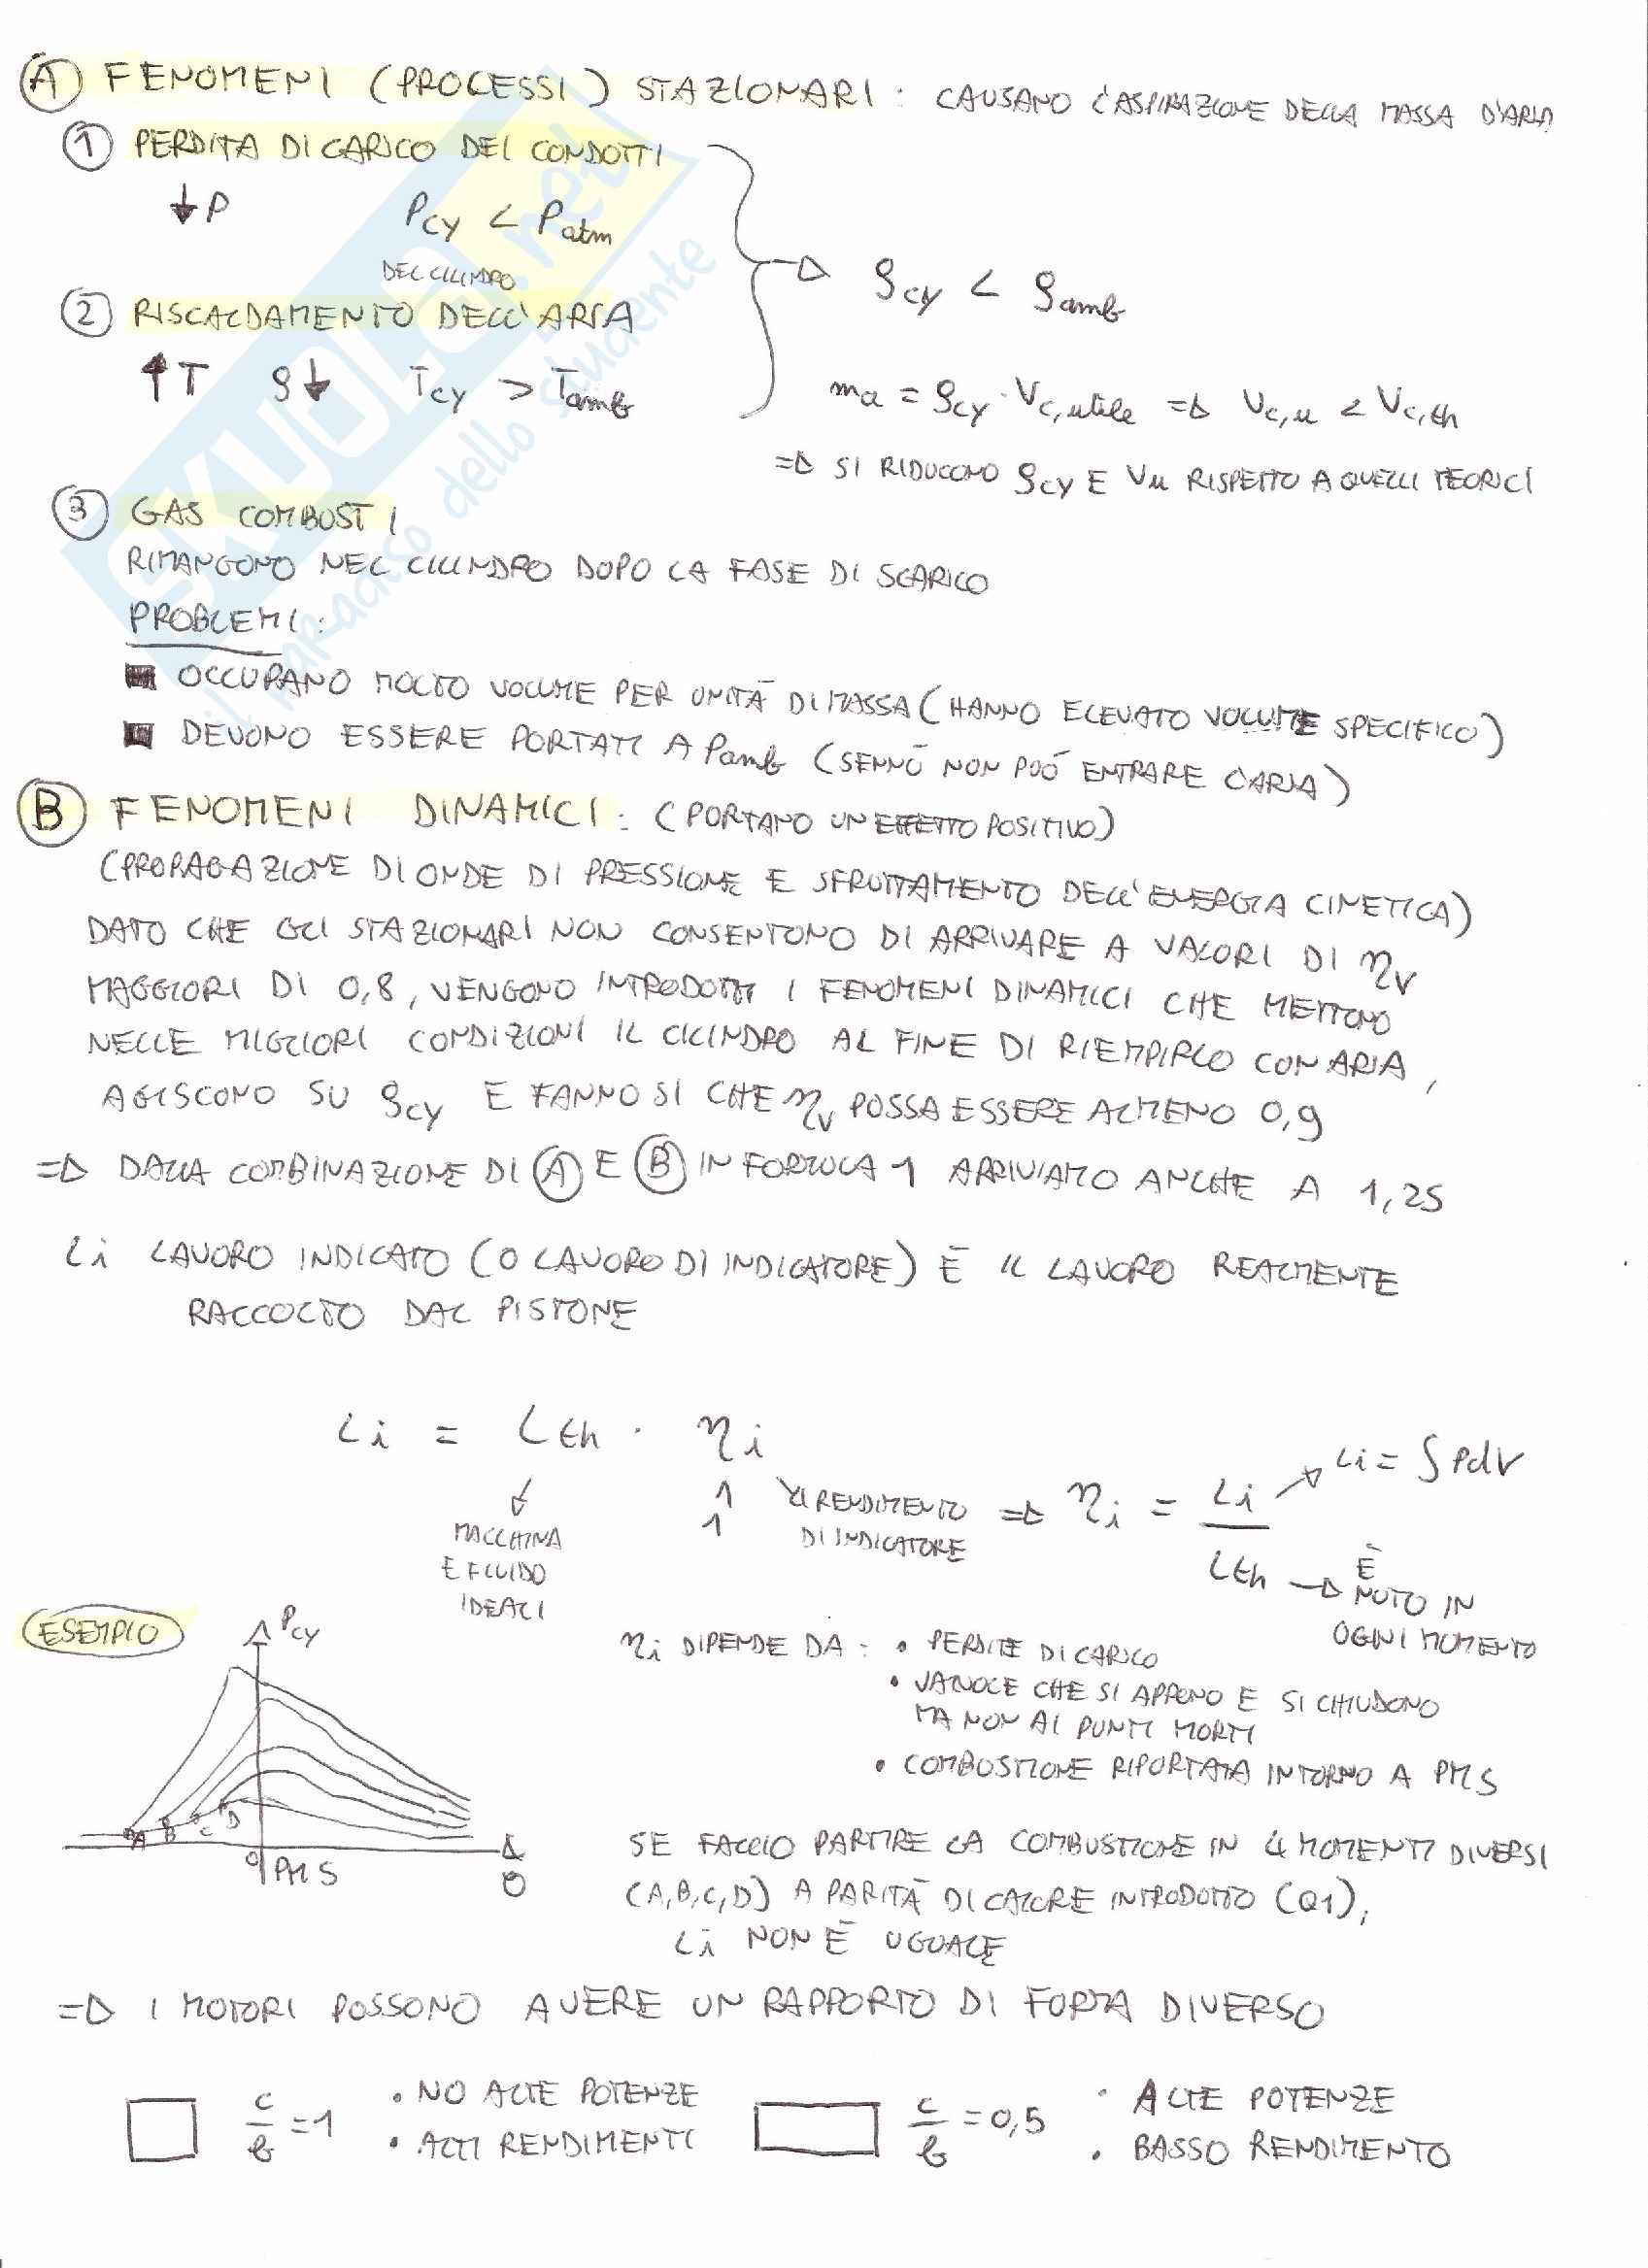 Ⓐ FENOMENI (PROCESSI) STAZIONARI : CAUSANO L'ASPIRAZIONE DELLA MASSA D'ARIA
① PERDITA DI CARICO DEI CONDOTTI
↓P Pcy < Patm
DEL CILINDRO
ρcy < ρamb
② RISCALDAMENTO DELL'ARIA
↑T ρ↓ Tcy > Tamb
ma = ρcy · Vc,utile => Vc,u < Vc,th
=> SI RIDUCONO ρcy E Vu RISPETTO A QUELLI TEORICI
③ GAS COMBUSTI
RIMANGONO NEL CILINDRO DOPO LA FASE DI SCARICO
PROBLEMI :
■ OCCUPANO MOLTO VOLUME PER UNITÀ DI MASSA (HANNO ELEVATO VOLUME SPECIFICO)
■ DEVONO ESSERE PORTATI A Pamb (SENNÒ NON PUÓ ENTRARE L'ARIA)
Ⓑ FENOMENI DINAMICI : (PORTANO UN EFFETTO POSITIVO)
(PROPAGAZIONE DI ONDE DI PRESSIONE E SFRUTTAMENTO DELL'ENERGIA CINETICA)
DATO CHE GLI STAZIONARI NON CONSENTONO DI ARRIVARE A VALORI DI ηv
MAGGIORI DI 0,8, VENGONO INTRODOTTI I FENOMENI DINAMICI CHE METTONO
NELLE MIGLIORI CONDIZIONI IL CILINDRO AL FINE DI RIEMPIRLO CON ARIA,
AGISCONO SU ρcy E FANNO SI CHE ηv POSSA ESSERE ALMENO 0,9
=> DALLA COMBINAZIONE DI Ⓐ E Ⓑ IN FORMULA 1 ARRIVIAMO ANCHE A 1,25
Li LAVORO INDICATO (O LAVORO DI INDICATORE) È IL LAVORO REALMENTE
RACCOLTO DAL PISTONE
Li = Lth · ηi
MACCHINA E FLUIDO IDEALI
1
RENDIMENTO DI INDICATORE
=> ηi = Li / Lth
Li = ∫PdV
È NOTO IN OGNI MOMENTO
ESEMPIO
Pcy
A B C D
0 PMS
θ
ηi DIPENDE DA : • PERDITE DI CARICO
• VALVOLE CHE SI APRONO E SI CHIUDONO
MA NON AI PUNTI MORTI
• COMBUSTIONE RIPORTATA INTORNO A PMS
SE FACCIO PARTIRE LA COMBUSTIONE IN 4 MOMENTI DIVERSI
(A,B,C,D) A PARITÀ DI CALORE INTRODOTTO (Q1),
Li NON È UGUALE
=> I MOTORI POSSONO AVERE UN RAPPORTO DI FORMA DIVERSO
c/b = 1 • NO ALTE POTENZE
• ALTI RENDIMENTI
c/b = 0,5 • ALTE POTENZE
• BASSO RENDIMENTO
SKUOLA.net
il paradiso dello studente